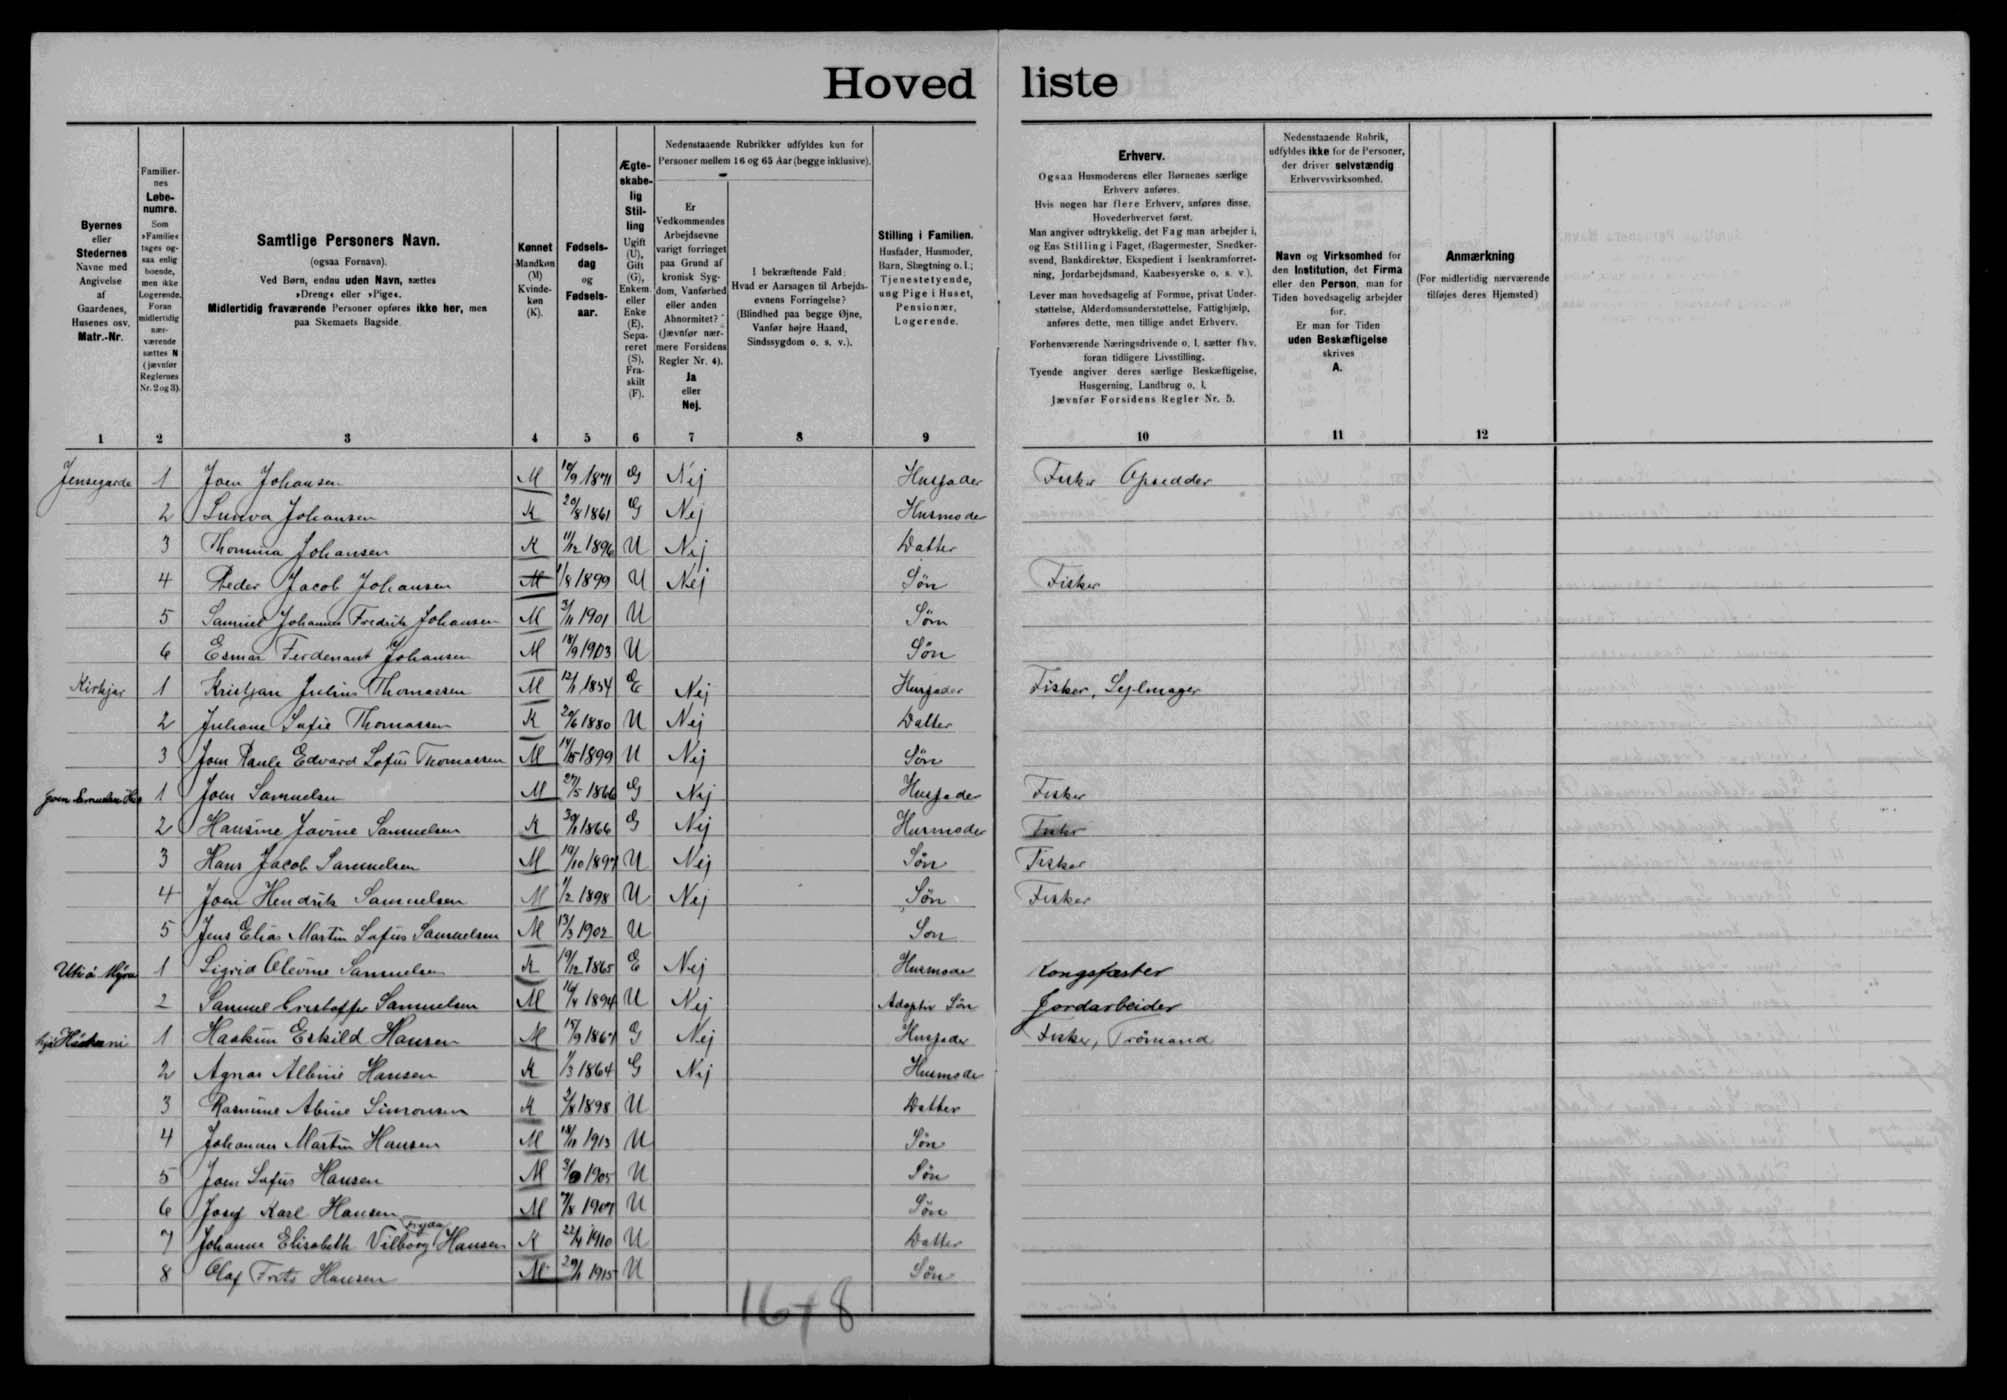 Hoved liste
Byernes
eller
Stedernes
Navne med
Angivelse
af
Gaardenes,
Husenes osv.
Matr.-Nr.
Familier-
nes
Løbe-
numre.
Som
»Familie«
tages og-
saa enlig
boende,
men ikke
Logerende.
Foran
midlertidig
nær-
værende
sættes N
(jævnfør
Reglernes
Nr. 2 og 3).
Samtlige Personers Navn.
(ogsaa Fornavn).
Ved Børn, endnu uden Navn, sættes
»Dreng« eller »Pige«.
Midlertidig fraværende Personer opføres ikke her, men
paa Skemaets Bagside.
Kønnet
Mandkøn
(M)
Kvinde-
køn
(K).
Fødsels-
dag
og
Fødsels-
aar.
Ægte-
skabe-
lig
Stil-
ling
Ugift
(U),
Gift
(G),
Enkem.
eller
Enke
(E),
Sepa-
reret
(S),
Fra-
skilt
(F).
Nedenstaaende Rubrikker udfyldes kun for
Personer mellem 16 og 65 Aar (begge inklusive).
Er
Vedkommendes
Arbejdsevne
varigt forringet
paa Grund af
kronisk Syg-
dom, Vanførhed
eller anden
Abnormitet?
(Jævnfør nær-
mere Forsidens
Regler Nr. 4).
Ja
eller
Nej.
I bekræftende Fald:
Hvad er Aarsagen til Arbejds-
evnens Forringelse?
(Blindhed paa begge Øjne,
Vanfør højre Haand,
Sindssygdom o. s. v.).
Stilling i Familien.
Husfader, Husmoder,
Barn, Slægtning o. l.;
Tjenestetyende,
ung Pige i Huset,
Pensionær,
Logerende.
Erhverv.
Ogsaa Husmoderens eller Børnenes særlige
Erhverv anføres.
Hvis nogen har flere Erhverv, anføres disse,
Hovederhvervet først.
Man angiver udtrykkelig, det Fag man arbejder i,
og Ens Stilling i Faget, (Bagermester, Snedker-
svend, Bankdirektør, Ekspedient i Isenkramforret-
ning, Jordarbejdsmand, Kaabesyerske o. s. v.).
Lever man hovedsagelig af Formue, privat Under-
støttelse, Alderdomsunderstøttelse, Fattighjælp,
anføres dette, men tillige andet Erhverv.
Forhenværende Næringsdrivende o. l. sætter fhv.
foran tidligere Livsstilling.
Tyende angiver deres særlige Beskæftigelse,
Husgerning, Landbrug o. l.
Jævnfør Forsidens Regler Nr. 5.
Nedenstaaende Rubrik,
udfyldes ikke for de Personer,
der driver selvstændig
Erhvervsvirksomhed.
Navn og Virksomhed for
den Institution, det Firma
eller den Person, man for
Tiden hovedsagelig arbejder
for.
Er man for Tiden
uden Beskæftigelse
skrives
A.
Anmærkning
(For midlertidig nærværende
tilføjes deres Hjemsted)
1 2 3 4 5 6 7 8 9 10 11 12
Jensegarde 1 Joen Johansen M 10/9 1871 G Nej Husfader Fisker Opsedder
2 Sunva Johansen K 20/8 1861 G Nej Husmoder
3 Thomina Johansen K 11/12 1896 U Nej Datter
4 Peder Jacob Johansen M 1/8 1899 U Nej Søn Fisker
5 Samuel Johannes Fredrik Johansen M 3/11 1901 U Søn
6 Esmar Ferdenant Johansen M 18/9 1903 U Søn
Kirkjar 1 Kristjan Julius Thomassen M 12/1 1854 E Nej Husfader Fisker, Sejlmager
2 Juliane Sofie Thomassen K 20/6 1880 U Nej Datter
3 Joen Paule Edvard Lofus Thomassen M 14/5 1899 U Nej Søn
Joen Samuelsen Hus 1 Joen Samuelsen M 27/5 1866 G Nej Husfader Fisker
2 Hansine Jovine Samuelsen K 30/1 1866 G Nej Husmoder Fisker
3 Hans Jacob Samuelsen M 19/10 1897 U Nej Søn Fisker
4 Joen Hendrik Samuelsen M 1/2 1898 U Nej Søn Fisker
5 Jens Elias Martin Sofus Samuelsen M 13/3 1902 U Søn
Uti á Mýra 1 Sigrid Olevine Samuelsen K 19/12 1865 E Nej Husmoder Kongsfæster
2 Samuel Cristoffer Samuelsen M 16/4 1894 U Nej Adoptiv Søn Jordarbeider
1 Haakun Eskild Hansen M 15/9 1867 G Nej Husfader Fisker, Trømand
2 Agnas Albine Hansen K 1/3 1864 G Nej Husmoder
3 Rasmine Abine Simonsen K 2/8 1898 U Datter
4 Johannes Martin Hansen M 18/11 1913 U Søn
5 Joen Sofus Hansen M 1905 U Søn
6 Josef Karl Hansen M 7/8 1907 U Søn
7 Johanne Elisabeth Vilborg Hansen K 22/4 1910 U Datter
8 Olaf Frits Hansen M 20/1 1915 U Søn
16+8